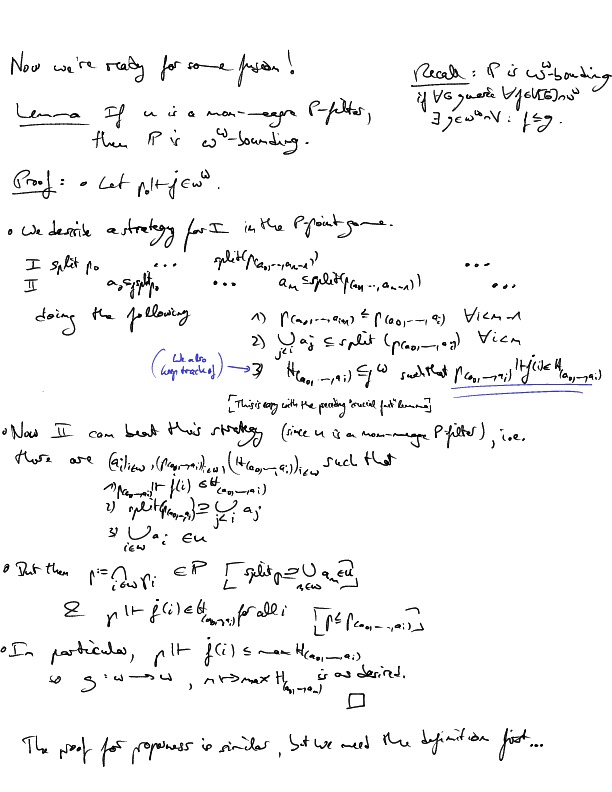 Now we're ready for some fusion!
Recall: P is ω^ω-bounding
if ∀G generic ∀f∈V[G]∩ω^ω
∃g∈ω^ω∩V: f≤g.
Lemma If u is a non-meagre P-filter,
then P is ω^ω-bounding.
Proof: • Let p₀ ⊩ ḟ∈ω^ω.
• We describe a strategy for I in the P-point game.
I split p₀ ... split(p(a₀,...,aₙ₋₁)) ...
II a₀⊆split p₀ ... aₙ⊆split(p(a₀,...,aₙ₋₁)) ...
doing the following
1) p(a₀,...,aᵢ₊₁) ≤ p(a₀,...,aᵢ) ∀i<n-1
2) ⋃_{j<i} aⱼ ⊆ split(p(a₀,...,aⱼ)) ∀i<n
(We also keep track of) → 3) H(a₀,...,aᵢ) ⊆ ω such that p(a₀,...,aᵢ) ⊩ ḟ(i)∈H(a₀,...,aᵢ)
[This is easy with the preceding "crucial fact" lemma]
• Now II can beat this strategy (since u is a non-meagre P-filter), i.e.
there are (aᵢ)ᵢ∈ω, (p(a₀,...,aᵢ))ᵢ∈ω, (H(a₀,...,aᵢ))ᵢ∈ω such that
1) p(a₀,...,aᵢ) ⊩ ḟ(i) ∈ H(a₀,...,aᵢ)
2) split(p(a₀,...,aᵢ)) ⊇ ⋃_{j<i} aⱼ
3) ⋃_{i∈ω} aᵢ ∈ u
• But then p := ⋂_{i∈ω} pᵢ ∈ P [split p ⊇ ⋃_{n∈ω} aₙ ∈ u]
& p ⊩ ḟ(i)∈H(a₀,...,aᵢ) for all i [p ≤ p(a₀,...,aᵢ)]
• In particular, p ⊩ ḟ(i) ≤ max H(a₀,...,aᵢ)
so g: ω → ω, n ↦ max H(a₀,...,aₙ) is as desired.
□
The proof for properness is similar, but we need the definition first...